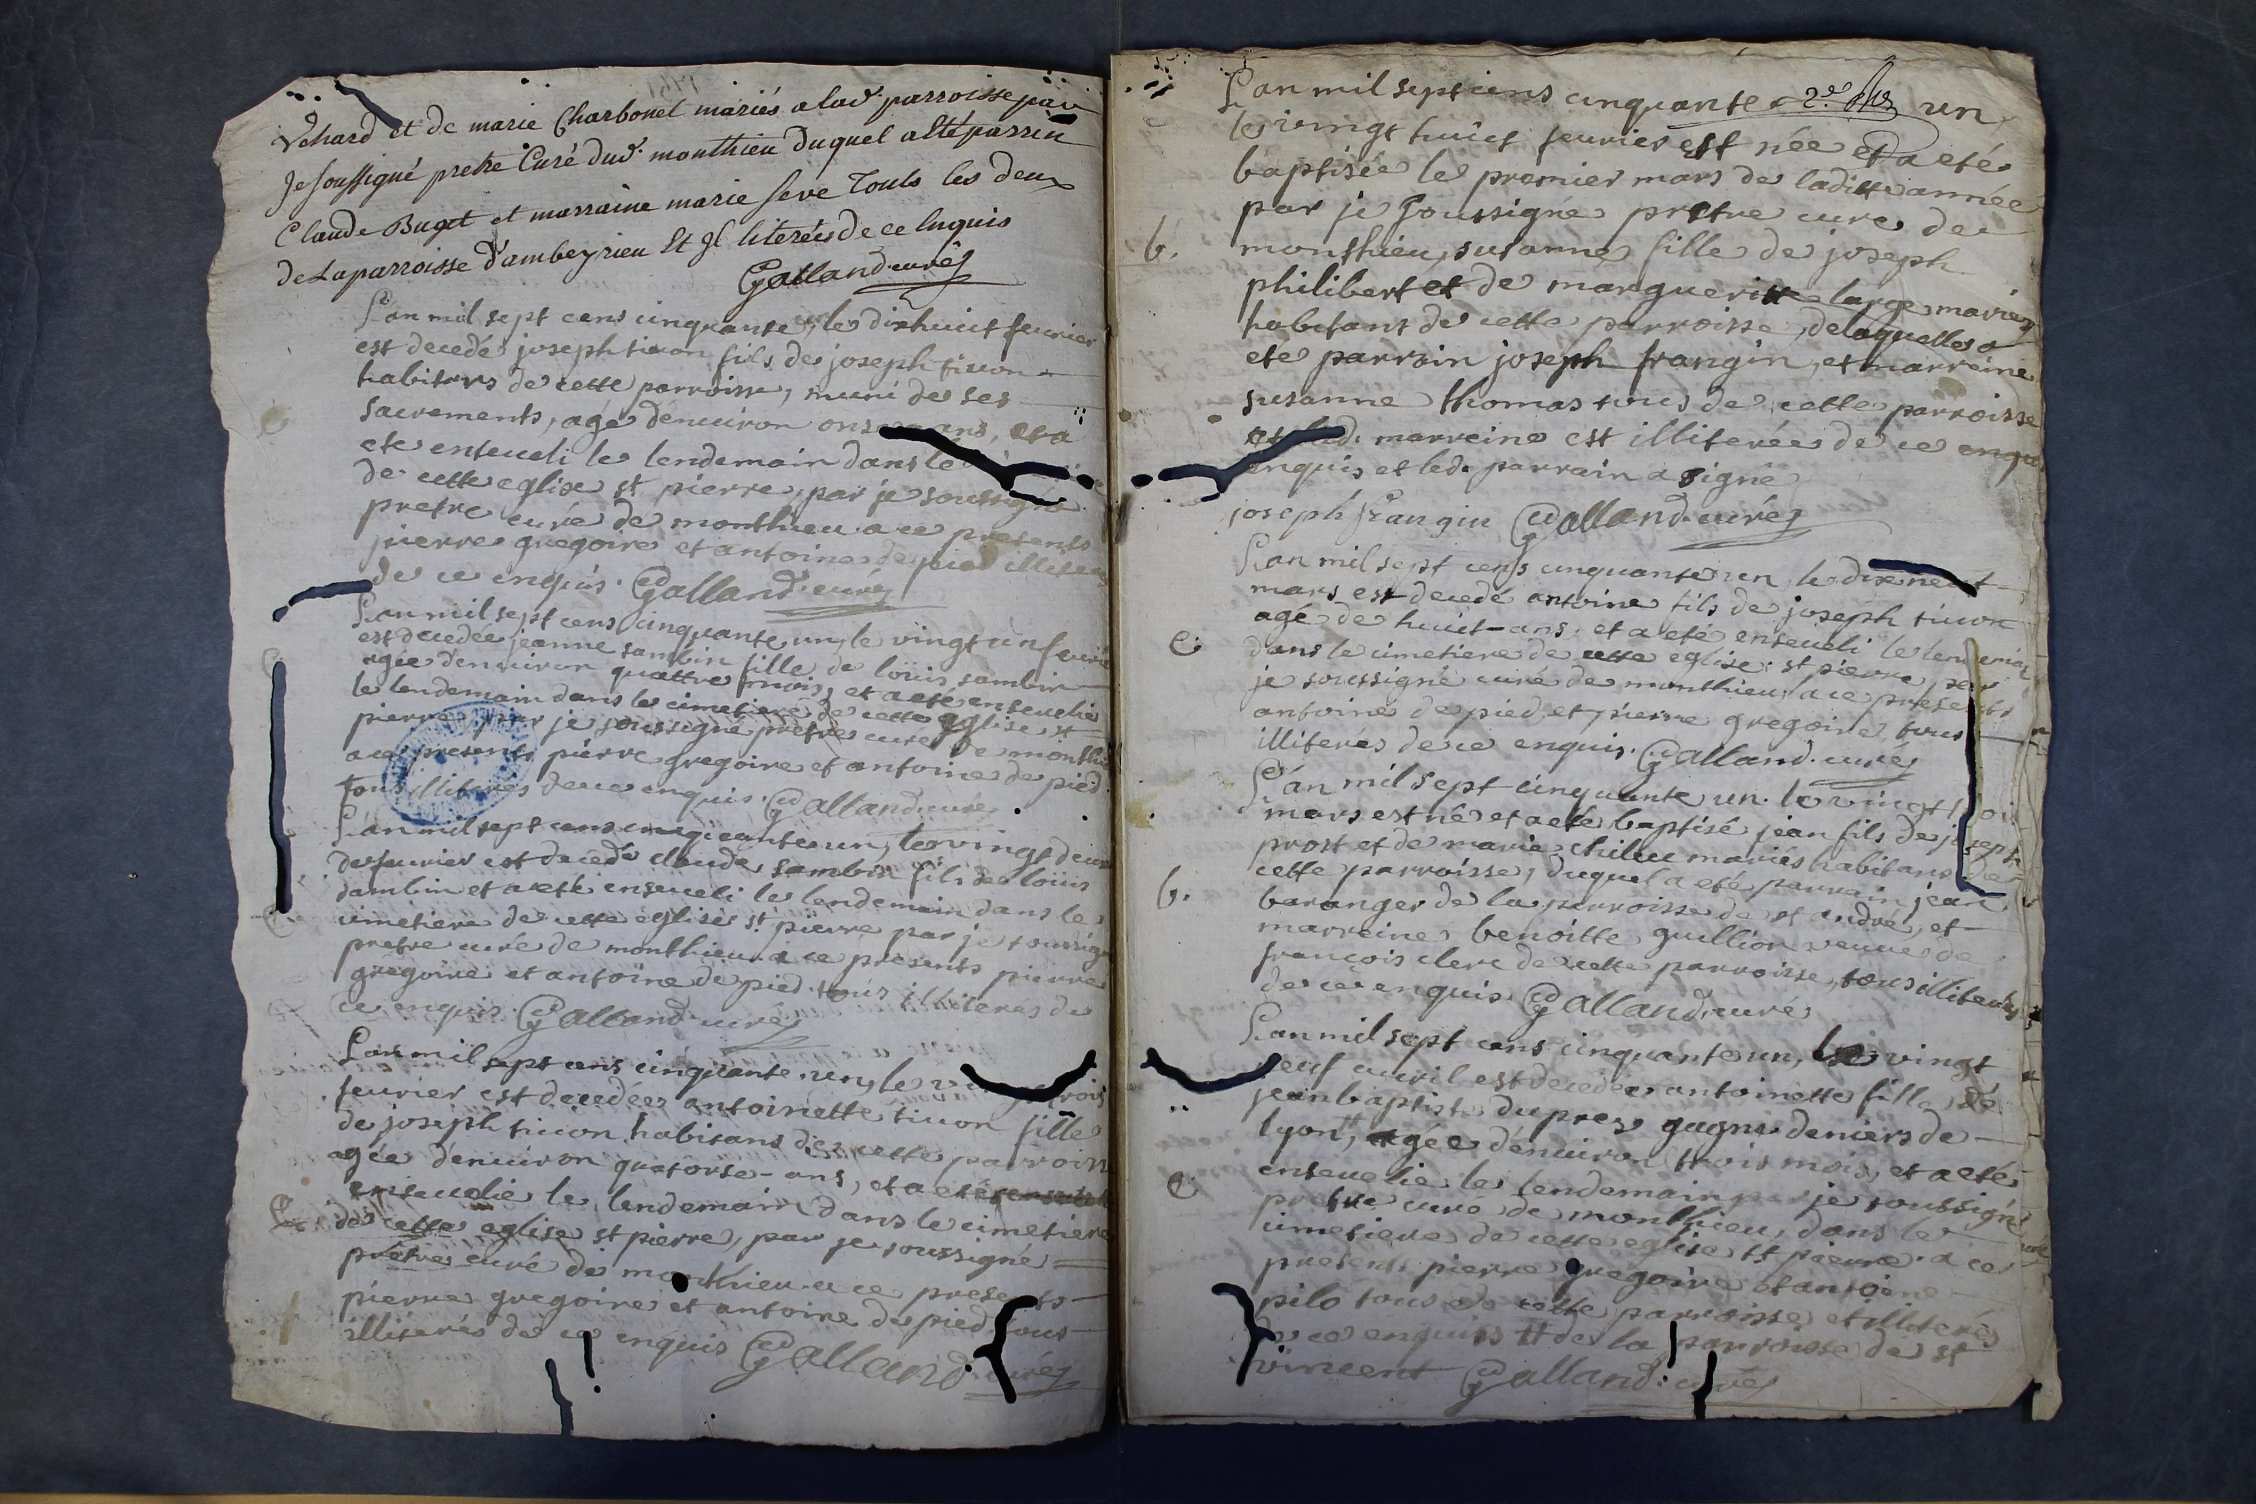 et de marie Charbonel mariés a lad. parroisse par
Je soussigné pretre Curé dud. monthieu duquel a été parrin
Claude Buget et marraine marie seve Touts les deux
de la parroisse d'ambeyrieu Et Il literées de ce Enquis
Galland. curé
L'an mil sept cens cinquante un, le dixhuict feurier
est decedé joseph tiuon fils de joseph tiuon
habitans de cette parroisse, muni de ses
sacrements, agé denuiron onse ans, et a
eté enseueli le lendemain dans le
de cette eglise st pierre, par je soussigné
pretre curé de monthieu a ce presents
pierre gregoire et antoine de pied
de ce enquis. Galland. curé
L'an mil sept cens cinquante un, le vingt un feurié
est decedée jeanne sambin fille de loüis sambin
agée denuiron quattre mois, et a eté enseuelie
le lendemain dans le cimetiere de cette eglise st
pierre par je soussigné pretre curé de monthieu
a ce presents pierre gregoire et antoine de pied
tous illiterés de ce enquis. Galland. curé
L'an mil sept cens cinquante un, le vingt deux
de feurier est decedé claude sambin fils de loüis
sambin et a eté enseueli le lendemain dans le
cimetiere de cette eglise st pierre par je soussigné
pretre curé de monthieu a ce presents pierre
gregoire et antoine de pied tous illiterés de
ce enquis. Galland. curé
L'an mil sept cens cinquante un, le trois
feurier est decedée antoinette tiuon fille
de joseph tiuon habitans de cette parroisse
agée denuiron quatorse ans, et a eté
C. enseuelie le lendemain dans le cimetiere
de cette eglise st pierre, par je soussigné
pretre curé de monthieu a ce presents
pierre gregoire et antoine de pied tous
illiterés de ce enquis Galland. curé
L'an mil sept cens cinquante 2de un
le vingt huict feurier est née et a eté
baptisée le premier mars de laditte année
par je soussigné pretre curé de
b. monthieu, susanne fille de joseph
philibert et de margueritte large mariés
habitans de cette parroisse, de laquelle a
eté parrain joseph frangin, et marreine
susanne thomas tous de cette parroisse
et lad. marreine est illiterée de ce enqu
enquis et led. parrain a signé
joseph frangin Galland. curé
L'an mil sept cens cinquante un, le dixneuf
mars est decedé antoine fils de joseph tiuon
agé de huict ans, et a eté enseueli le lendemain
C. dans le cimetiere de cette eglise st pierre par
je soussigné curé de monthieu, a ce presents
antoine de pied, et pierre gregoire, tous
illiterés de ce enquis. Galland. curé
L'an mil sept cinquante un. le vingt trois
mars est né et a eté baptisé jean fils de joseph
prost et de marie mariés habitans de
cette parroisse, duquel a eté parrain jean
b. baranger de la parroisse de st andré, et
marreine benoitte guillion veuue de
francois clerc de cette parroisse, tous illiterés
de ce enquis Galland. curé
L'an mil sept cens cinquante un, le vingt
neuf auril est decedée antoinette fille de
jean baptiste dupres gagne deniers de
lyon, agée denuiron trois mois, et a eté
enseuelie le lendemain par je soussigné
C. pretre curé de monthieu, dans le
cimetiere de cette eglise st pierre. a ce
presents pierre gregoire et antoine
pilo tous de cette parroisse et illiterés
de ce enquis # de la parroisse de st
vincent Galland. curé